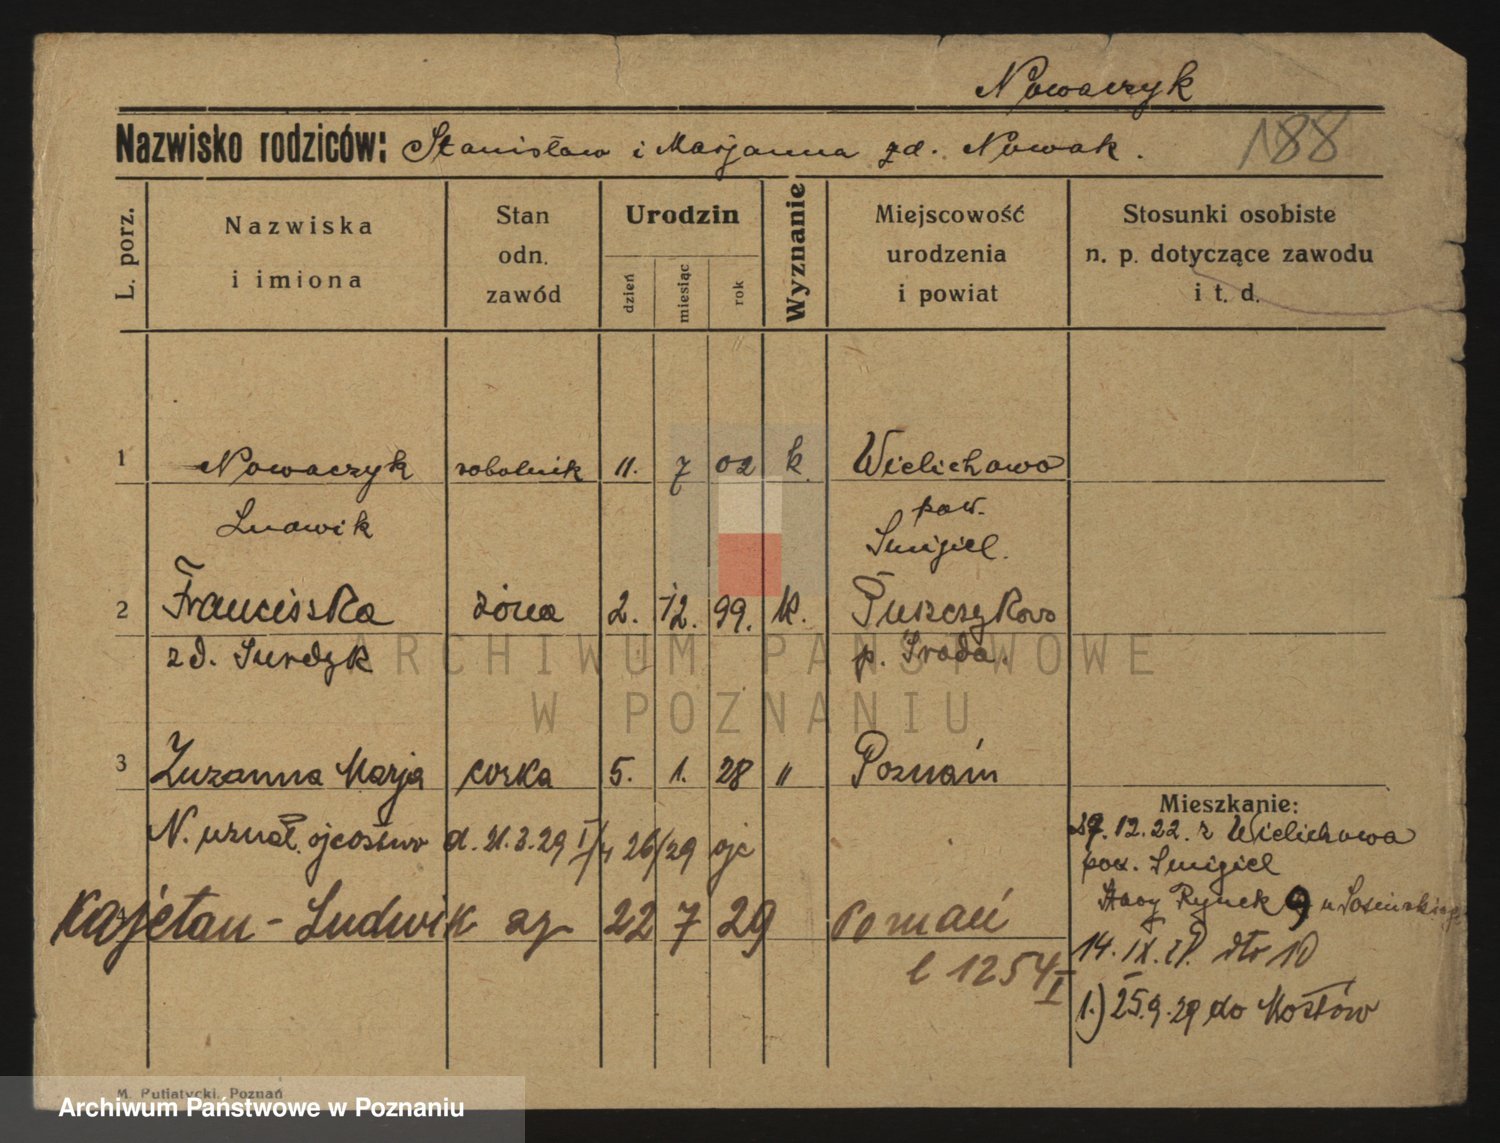 Nowaczyk
Nazwisko rodziców: Stanisław i Marjanna zd. Nowak.
188
L. porz.
Nazwiska
i imiona
Stan
odn.
zawód
Urodzin
dzień
miesiąc
rok
Wyznanie
Miejscowość
urodzenia
i powiat
Stosunki osobiste
n. p. dotyczące zawodu
i t. d.
1 Nowaczyk robotnik 11. 7 02 k. Wielichowo
Ludwik pow.
Śmigiel.
2 Franciszka żona 2. 12. 99. k. Puszczykowo
zd. Smrdzyk p. Środa.
3 Zuzanna Marja córka 5. 1. 28 " Poznań
N. uznał ojcostwo d. 21.3.29 26/29 ojc
Kajetan - Ludwik 22 7 29 Poznań
l 1254 I
Mieszkanie:
29.12.22. z Wielichowa
pow. Śmigiel
Stary Rynek 9 u
14. IX. dto 10
1.) 25.9.29 do
ARCHIWUM PAŃSTWOWE
W POZNANIU
M. Putiatycki, Poznań
Archiwum Państwowe w Poznaniu